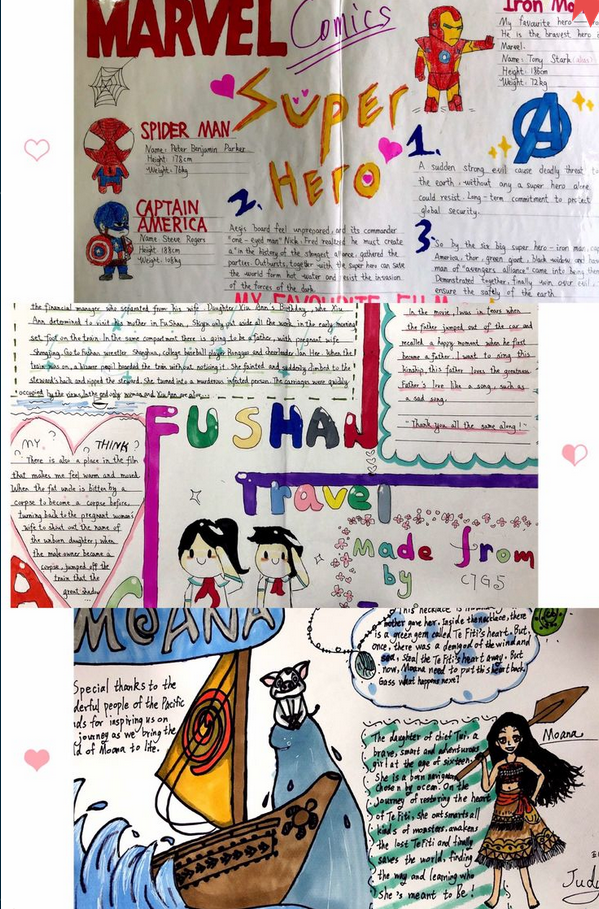 MARVEL
Comics
SUPER
HERO
Iron
My favourite hero
He is the bravest hero i
Marvel.
Name: Tony Stark
Height: 186cm
Weight: 72kg
SPIDER MAN
Name: Peter Benjamin Parker
Height: 178cm
Weight: 76kg
CAPTAIN
AMERICA
Name: Steve Rogers
Height: 188cm
Weight: 108kg
1.
A sudden strong evil cause deadly threat to
the earth. without any a super hero alone
could resist. Long-term commitment to protect
global security.
2.
Aegis board feel unprepared, and its commander
"one-eyed man" Nick. Fred realized he must create
a "in the history of the strongest alliance, gathered the
parties Outbursts, together with the super hero can save
the world form hot water and resist the invasion
of the forces of the dark.
3
So by the six big super hero - iron man, cap
America, thor, green giant, black widow and haw
man of "avengers alliance" came into being them
Demonstrated together, finally win over evil,
ensure the safety of the earth.
MY FAVOURITE FILM
the financial manager who separated from his wife. Daughter Xiu Ann's Birthday, Who Xiu
Ann determined to visit his mother in FuShan, Skiyn only put aside all the work, in the early morning
set foot on the train. In the same compartment there is going to be a father, with pregnant wife
Shengjing. Go to Fushan wrestler Shanghua, college baseball player Rongguo and cheerleader Jan Her. When the
train was on, a bizarre pupil boarded the train without noticing it. She fainted and suddenly climbed to the
steward's back and ripped the steward. She turned into a murderous infected person. The carriages were quickly
occupied by the virus. In the end, only woman and Xiu Ann are alive...
In the movie, I was in tears when
the father jumped out of the car and
recalled a happy moment when he first
became a father. I want to sing this
kinship, this father loves the greatness
Father's love like a song, such as
a sad song.
"Thank you all the same along!"
FUSHAN
Travel
MY THINK?
There is also a place in the film
that makes me feel warm and moved.
When the fat uncle is bitten by a
corpse to become a corpse before,
turning back to the pregnant woman's
wife to shout out the name of
the unborn daughter; when
the male owner became a
corpse, jumped off the
train that the
great shadow
Made from
by C7G5
MOANA
Special thanks to the
derful people of the Pacific
ds for inspiring us on
journey as we bring the
ld of Moana to life.
This necklace is
mother gave her. Inside the necklace, there
is a green gem called Te Fiti's heart. But,
once, there was a demigod of the wind and
sea, steal the Te Fiti's heart away. But
now, Moana need to put this heart back.
Gass what happens next?
The daughter of chief Tui, a
brave, smart and adventurous
girl at the age of sixteen.
She is a born navigator
chosen by ocean. On the
journey of restoring the heart
of Te Fiti, she outsmarts all
kinds of monsters, awakens
the lost Te Fiti and finally
saves the world, finding
the way and learning who
she's meant to be!
Moana
Judy